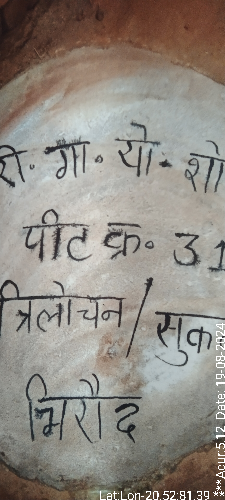 रा. गा. यो. शो
पीट क्र. 31
त्रिलोचन / सुक
भिरौद
Lat Lon-20.52:81.39
***Acur:5.12, Date: 19-08-2024